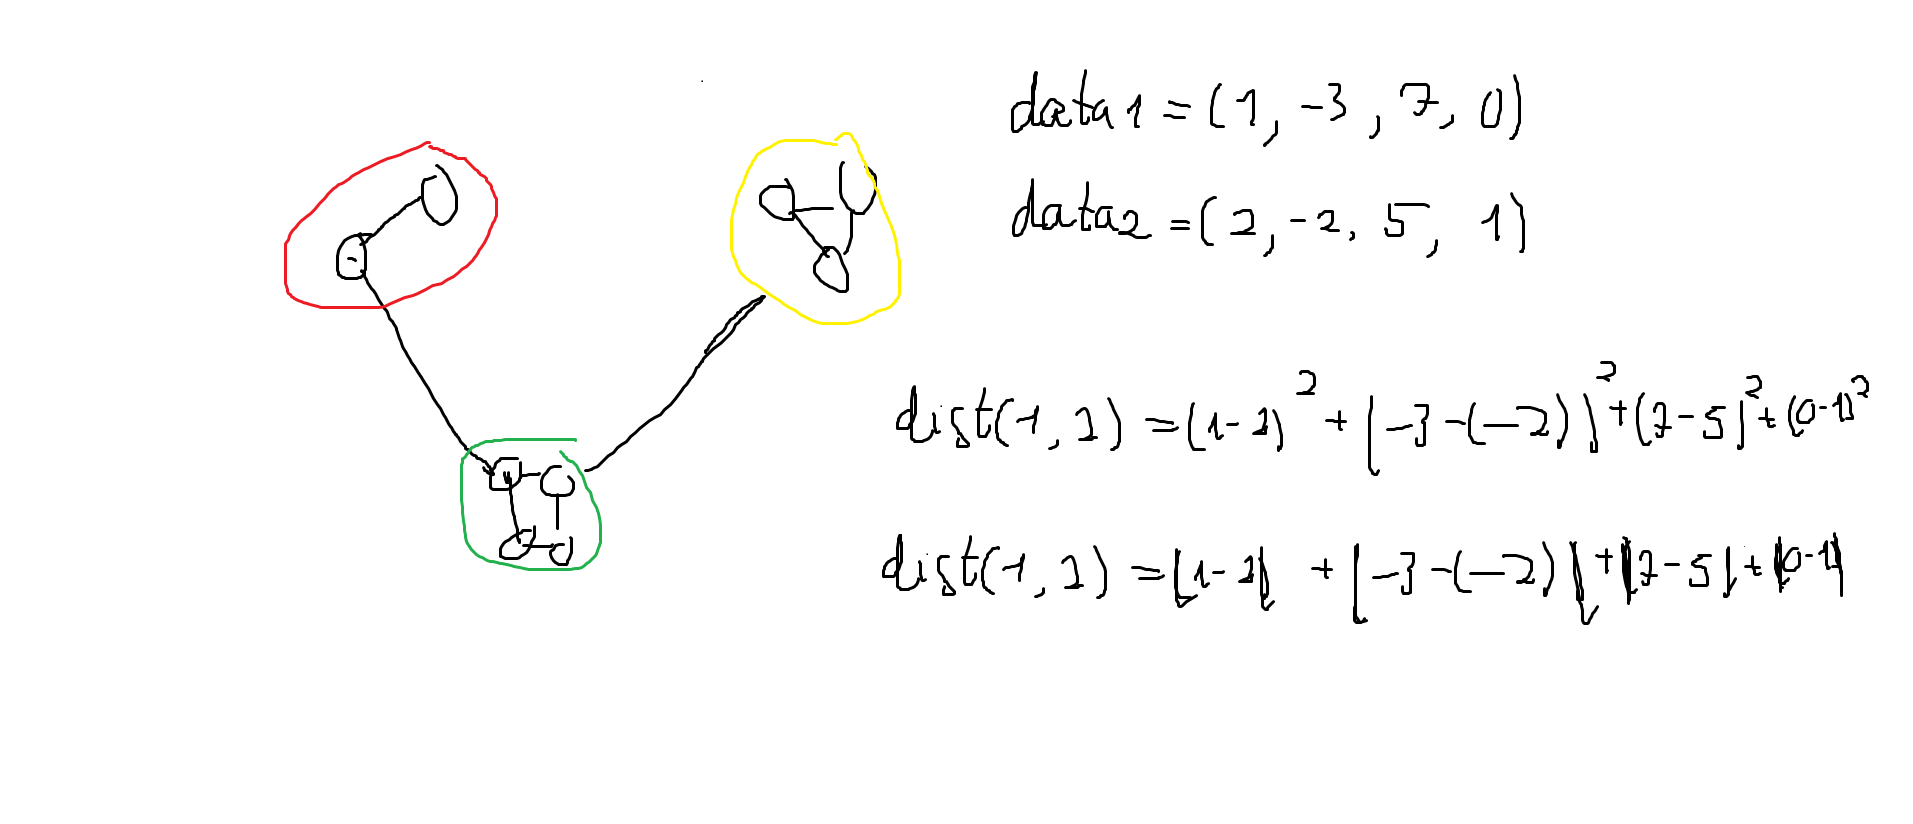 data1 = (1, -3, 7, 0)
data2 = (2, -2, 5, 1)
dist(1, 2) = (1-2)² + (-3-(-2))² + (7-5)² + (0-1)²
dist(1, 2) = |1-2| + |-3-(-2)| + |7-5| + |0-1|